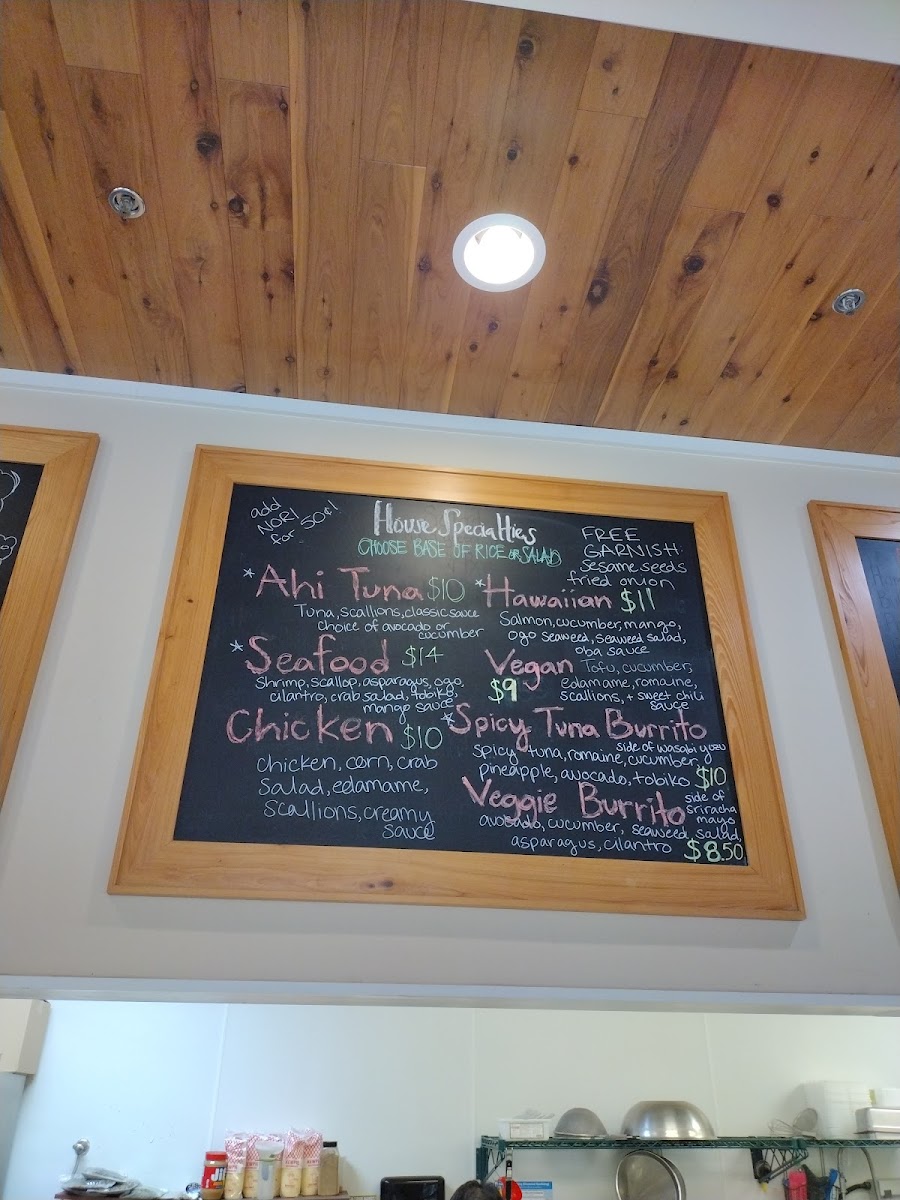 add
NORI
for 50¢!
House Specialties
CHOOSE BASE OF RICE OR SALAD
FREE
GARNISH:
sesame seeds
fried onion
*Ahi Tuna $10
Tuna, scallions, classic sauce
choice of avocado or
cucumber
*Seafood $14
Shrimp, scallop, asparagus, ogo,
cilantro, crab salad, tobiko,
mango sauce
Chicken $10
chicken, corn, crab
Salad, edamame,
scallions, creamy
sauce
*Hawaiian $11
Salmon, cucumber, mango,
ogo seaweed, seaweed salad,
oba sauce
Vegan Tofu, cucumber,
$9 edamame, romaine,
scallions, + sweet chili
sauce
*Spicy Tuna Burrito
side of wasabi yuzu
spicy tuna, romaine, cucumber,
pineapple, avocado, tobiko $10
Veggie Burrito side of
sriracha
mayo
avocado, cucumber, seaweed salad,
asparagus, cilantro $8.50